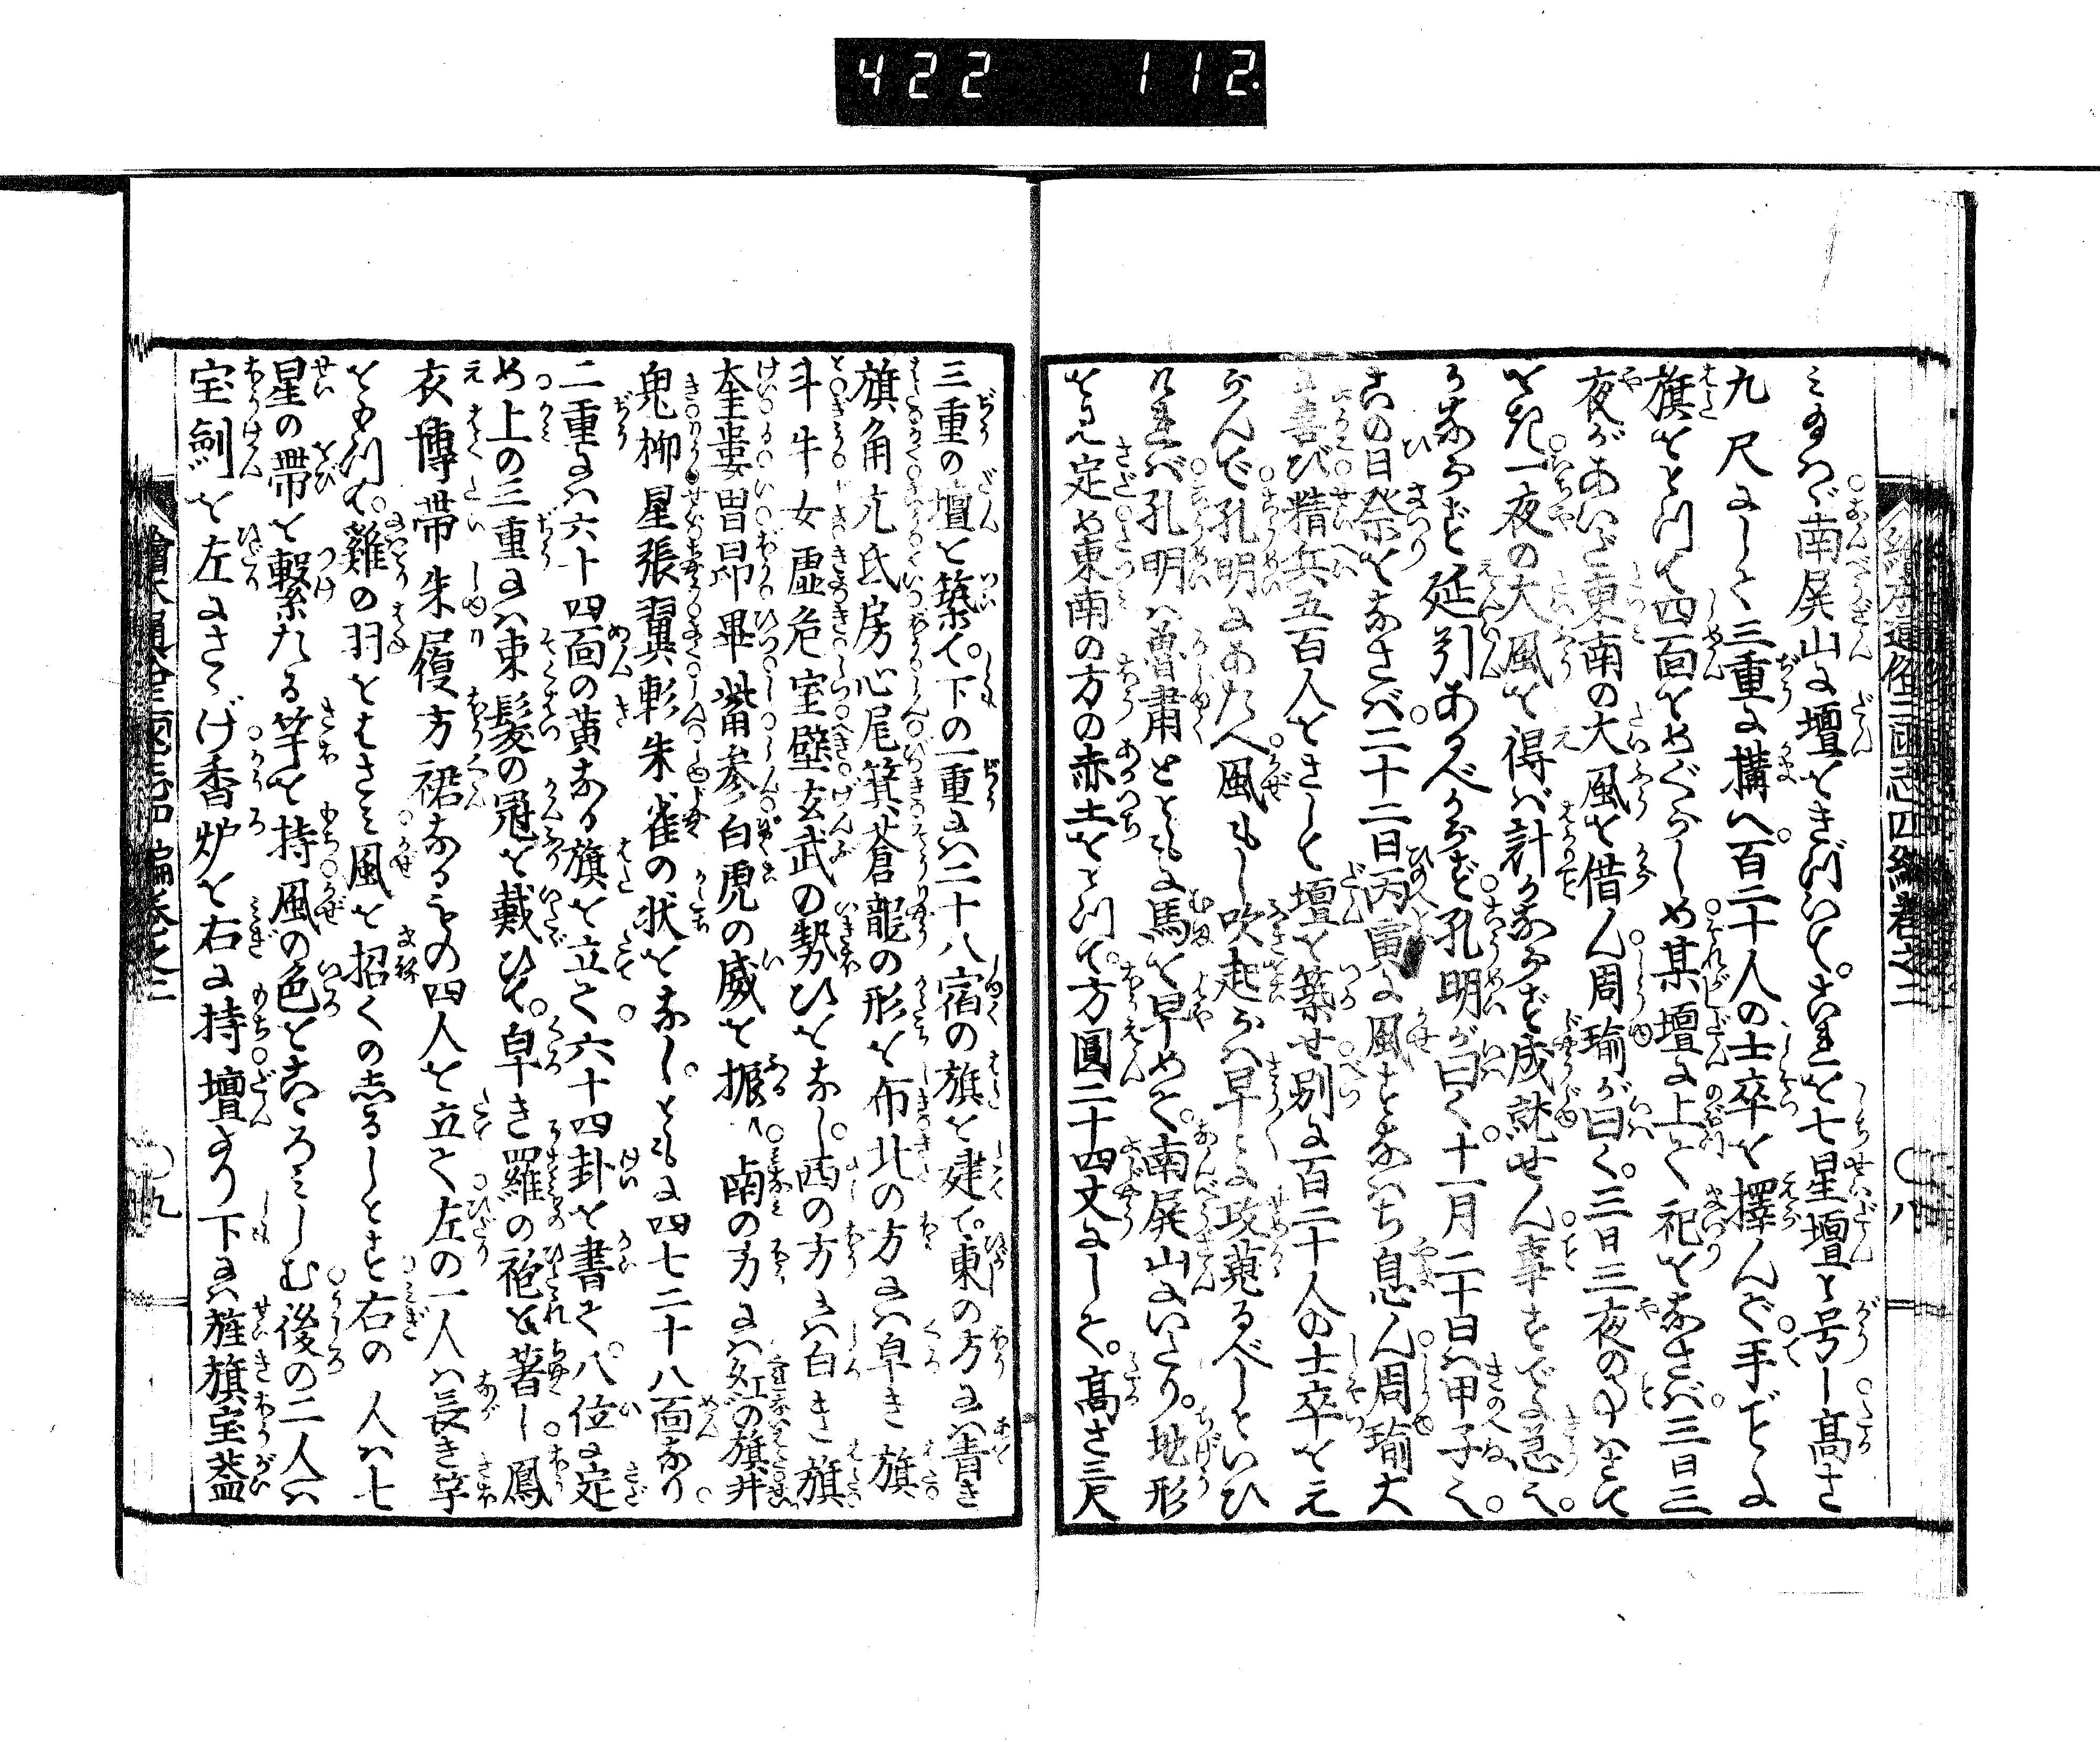 422 112.
繪本通俗三國志四編卷之二
み給ハゞ南屏山に壇をきづいて。これを七星壇と号し高さ
九尺にして三重に構へ。百二十人の士卒を擇んで。手ごとに
旗をとつて四面をめぐらしめ某壇に上て祀をなさば。三日三
夜があいだ東南の大風を借ん周瑜が曰く。三日三夜のハさて
をき一夜の大風を得バ計かならず成就せん事すでに急へ。
かならず延引あるべからず孔明が曰く。十一月二十日ハ甲子へ。
この日祭をなさバ。二十二日丙寅に風すなハち息ん周瑜大
に喜び精兵五百人をさして壇を築せ別に百二十人の士卒を
えらんで孔明にあたへ。風もし吹起らハ早々に攻蒐るべしといひ
ければ孔明ハ魯肅とともに馬を早めて。南屏山にいたり。地形
を見定め東南の方の赤土をとつて。方圓二十四丈にして。高さ三尺
八
三重の壇を築て。下の一重にハ二十八宿の旗を建て。東の方にハ青き
旗角亢氐房心尾箕蒼龍の形を布北の方にハ皁き旗
斗牛女虚危室壁玄武の勢ひをなし。西の方にハ白き旗
奎婁胃昴畢觜參白虎の威を振ヘ。南の方にハ紅の旗井
鬼柳星張翼軫朱雀の状をなし。ともに四七二十八面なり。
二重にハ六十四面の黄なる旗を立て。六十四卦を書て。八位に定
め上の三重にハ束髪の冠を戴ひて。皁き羅の袍を著し。鳳
衣博帶朱履方裙なるもの四人を立て左の一人ハ長き竿
をもつて。雞の羽をはさミ風を招くのしるしとす右の人ハ七
星の帶を繫たる竿を持風の色をこゝろミしむ後の二人ハ
宝劍を左にさゝげ香炉を右に持壇より下にハ旌旗宝蓋
九